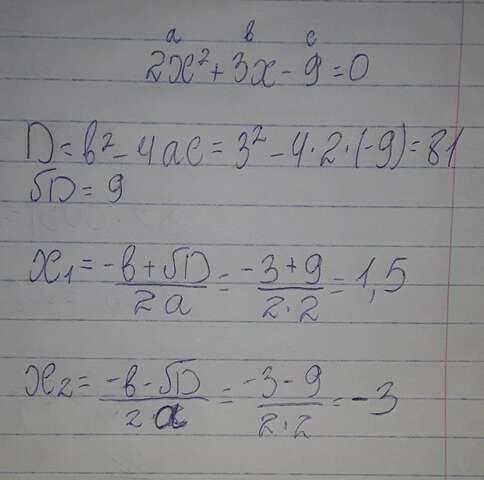 a в c
2x² + 3x - 9 = 0
D = в² - 4ac = 3² - 4·2·(-9) = 81
√D = 9
x₁ = (-в + √D)/(2a) = (-3 + 9)/(2·2) = 1,5
x₂ = (-в - √D)/(2a) = (-3 - 9)/(2·2) = -3